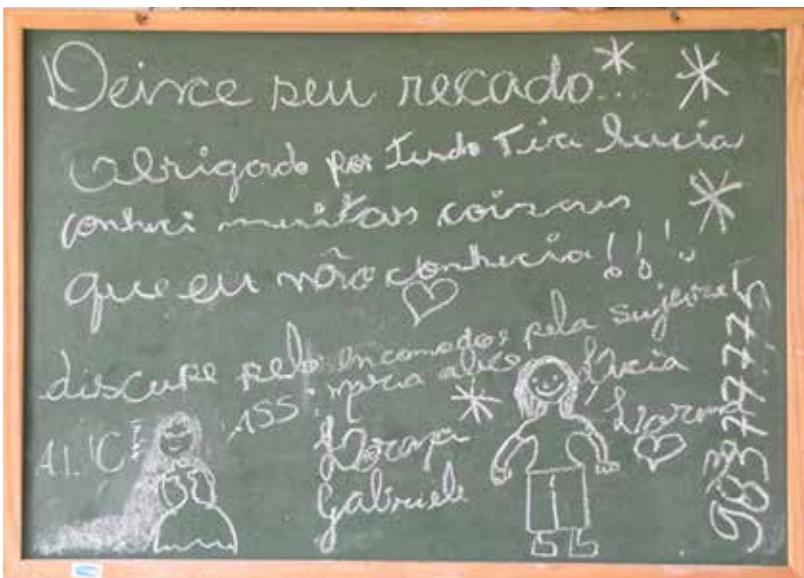 Deixe seu recado...
Obrigado por tudo Tia Lucia
conheci muitas coisas
que eu não conhecia!!!
discupe pelo encomodo e pela sujeira!
ASS: maria alice Lúcia
ALICE
Gabriele